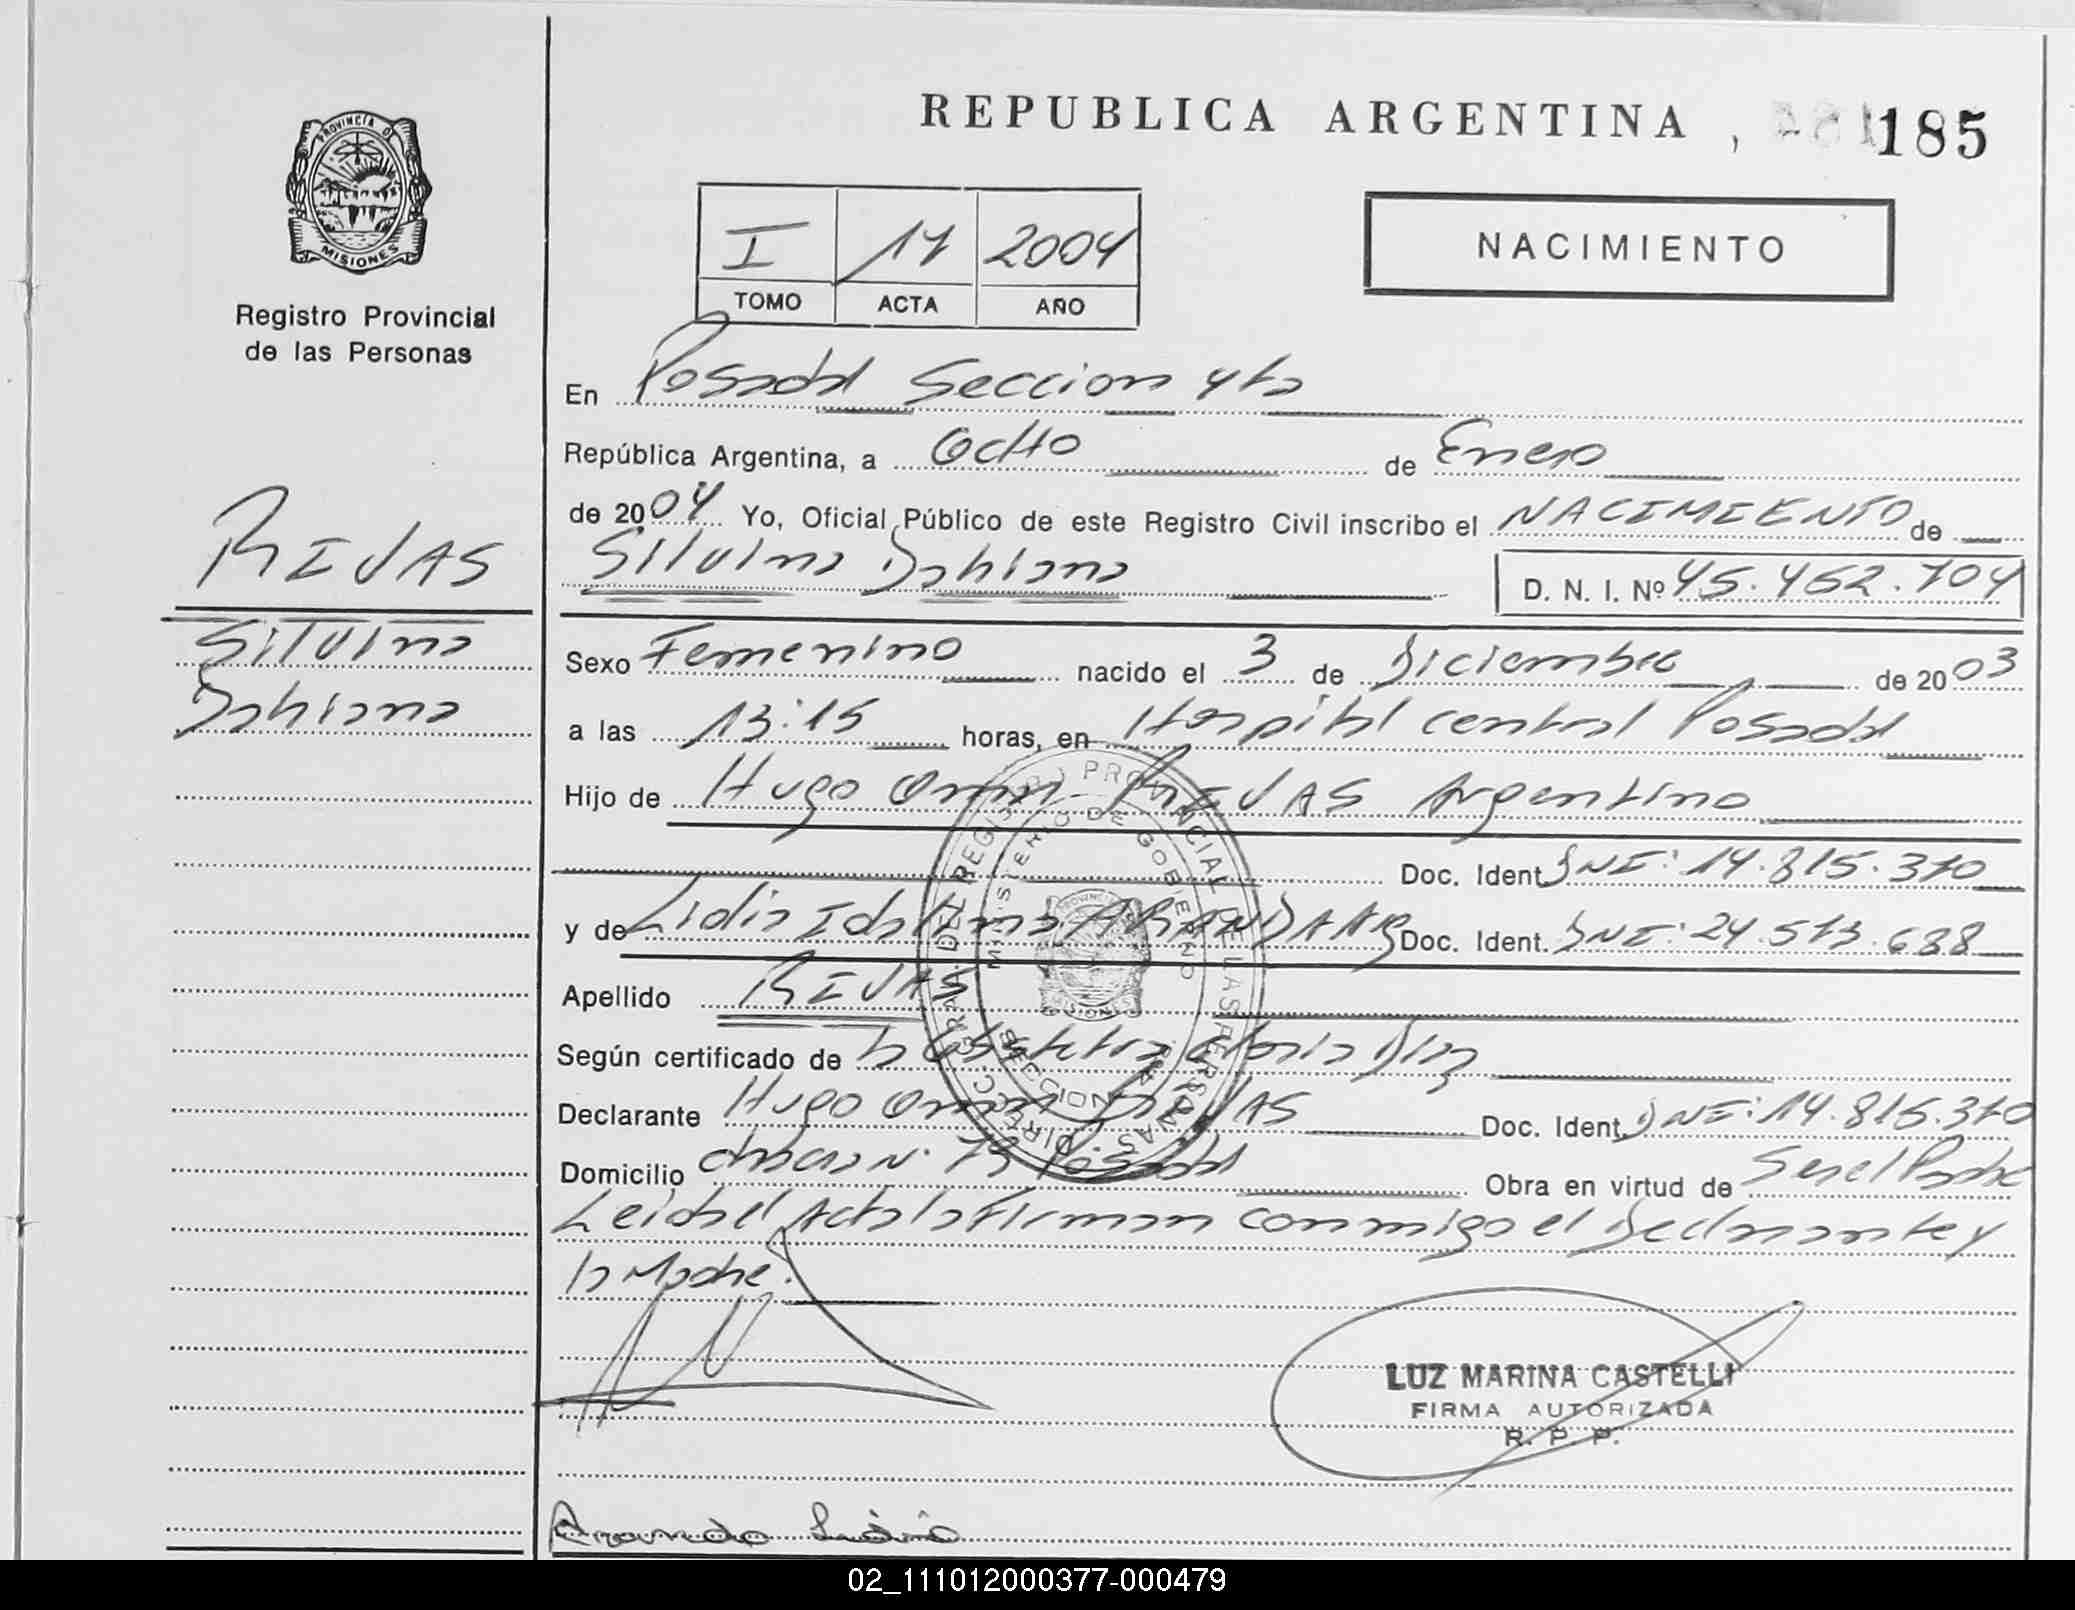 REPUBLICA ARGENTINA , 185
PROVINCIA D
MISIONES
Registro Provincial
de las Personas
I 17 2004
TOMO ACTA AÑO
NACIMIENTO
En Posadas Seccion 4ta
República Argentina, a Ocho de Enero
de 2004 Yo, Oficial Público de este Registro Civil inscribo el NACIMIENTO de
RIVAS
Silvina Dahiana D. N. I. Nº 45.452.704
Silvina
Dahiana
Sexo Femenino nacido el 3 de Diciembre de 2003
a las 13:15 horas, en Hospital central Posadas
Hijo de Hugo Omar RIVAS Argentino
Doc. Ident DNI: 14.815.370
y de Lidia ARANDA ARG Doc. Ident. DNI: 24.573.638
Apellido RIVAS
Según certificado de la Obstetra Gloria Diaz
Declarante Hugo Omar RIVAS Doc. Ident. DNI: 14.815.370
Domicilio chacra N. 73 Posadas Obra en virtud de Ser el Padre
Leida el Acta la firman conmigo el Declarante y
la Madre.
DIREC. GRAL. DEL REGISTRO PROVINCIAL DE LAS PERSONAS
MINISTERIO DE GOBIERNO
SECCION
LUZ MARINA CASTELLI
FIRMA AUTORIZADA
R. P. P.
Aranda Lidia
02_111012000377-000479